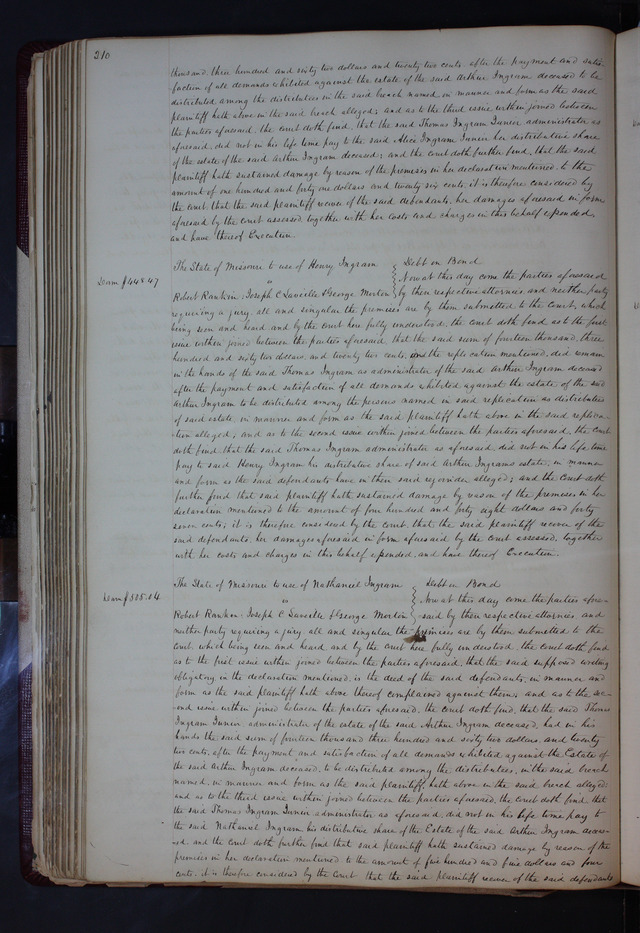 210
thousand three hundred and sixty two dollars and twenty two cents after the payment and satis-
faction of all demands exhibited against the estate of the said Arthur Ingram deceased to be
distributed among the distributees in the said breach named, in manner and form as the said
plaintiff hath above in the said breach alleged; and as to the third issue within joined between
the parties aforesaid, the court doth find, that the said Thomas Ingram Junior administrator as
aforesaid, did not in his life time pay to the said Alice Ingram Junior her distributive share
of the estate of the said Arthur Ingram deceased; and the court doth further find, that the said
plaintiff hath sustained damage by reason of the premises in her declaration mentioned to the
amount of one hundred and forty one dollars and twenty six cents, it is therefore considered by
the court that the said plaintiff recover of the said defendants, her damages aforesaid in form
aforesaid by the court assessed together with her costs and charges in this behalf expended,
and have thereof Execution.
The State of Missouri to use of Henry Ingram } Debt on Bond
Dam $448.47
vs } Now at this day come the parties aforesaid
Robert Rankin, Joseph C Laveille & George Morton } by their respective attornies and neither party
requiring a jury, all and singular the premises are by them submitted to the Court, which
being seen and heard, and by the court here fully understood, the court doth find, as to the first
issue within joined between the parties aforesaid, that the said sum of fourteen thousand, three
hundred and sixty two dollars, and twenty two cents, in the replication mentioned, did remain
in the hands of the said Thomas Ingram as administrator of the said Arthur Ingram deceased
after the payment and satisfaction of all demands exhibited against the estate of the said
Arthur Ingram to be distributed among the persons named in said replication as distributees
of said estate, in manner and form as the said plaintiff hath above in the said replica-
tion alleged; and as to the second issue within joined between the parties aforesaid, the Court
doth find that the said Thomas Ingram administrator as aforesaid, did not in his life time
pay to said Henry Ingram his distributive share of said Arthur Ingrams estate, in manner
and form as the said defendants have in their said rejoinder alleged; and the Court doth
further find that said plaintiff hath sustained damage by reason of the premises in her
declaration mentioned to the amount of four hundred and forty eight dollars and forty
seven cents; it is therefore considered by the court, that the said plaintiff recover of the
said defendants, her damages aforesaid in form aforesaid by the court assessed, together
with her costs and charges in this behalf expended, and have thereof Execution.
The State of Missouri to use of Nathaniel Ingram } Debt on Bond
Dam $505.04
vs } Now at this day come the parties afore-
Robert Rankin, Joseph C Laveille & George Morton } said by their respective attornies, and
neither party requiring a jury, all and singular the premises are by them submitted to the
court, which being seen and heard, and by the court here fully understood, the court doth find
as to the first issue within joined between the parties aforesaid, that the said supposed writing
obligatory in the declaration mentioned, is the deed of the said defendants, in manner and
form as the said plaintiff hath above thereof complained against them; and as to the sec-
ond issue within joined between the parties aforesaid, the court doth find, that the said Thomas
Ingram Junior administrator of the estate of the said Arthur Ingram deceased, had in his
hands the said sum of fourteen thousand three hundred and sixty two dollars, and twenty
two cents, after the payment and satisfaction of all demands exhibited against the Estate of
the said Arthur Ingram deceased, to be distributed among the distributees, in the said breach
named, in manner and form as the said plaintiff, hath above in the said breach alleged;
and as to the third issue within joined between the parties aforesaid, the court doth find that
the said Thomas Ingram Junior administrator as aforesaid, did not in his life time pay to
the said Nathaniel Ingram, his distributive share of the Estate of the said Arthur Ingram deceas-
ed, and the court doth further find that said plaintiff hath sustained damage by reason of the
premises in her declaration mentioned to the amount of five hundred and five dollars and four
cents, it is therefore considered by the Court that the said plaintiff recover of the said defendants